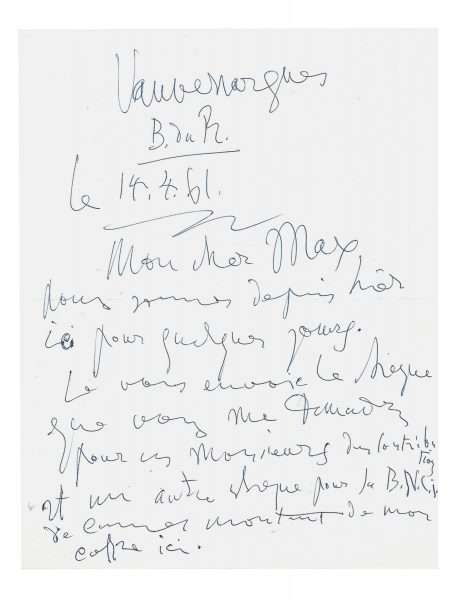 Vauvenargues
B. du R.
Le 14.4.61.
Mon cher Max,
nous sommes depuis hier
ici pour quelques jours.
Je vous envoie le chèque
que vous me demandez
pour ces Monsieurs des contribu
tions
et un autre chèque pour la B.N.C.I.
de Cannes montant de mon
coffre ici.